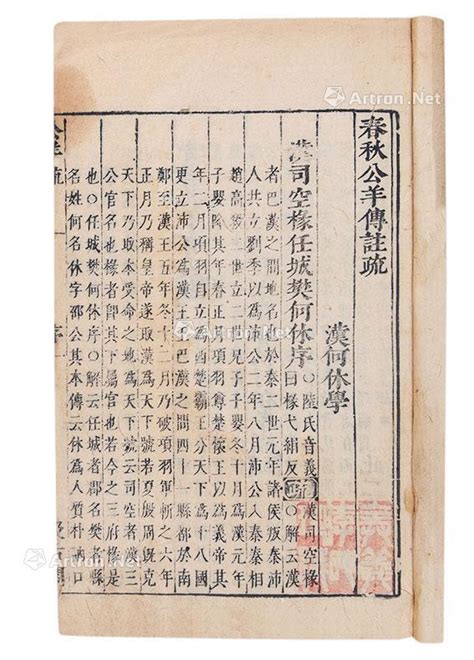 Artron.Net
春秋公羊傳註疏
漢何休學
漢司空椽任城樊何休序
○陸氏音義疏漢司空椽
曰椽弋絹反○解云漢
者巴漢之間地名也於秦二世元年諸侯叛秦沛
人共立劉季以爲沛公二年八月沛公入秦秦相
趙高殺二世立二世兄子子嬰冬十月爲漢元年
子嬰降其年春正月項羽尊楚懷王以爲義帝其
年二月項羽自立爲西楚霸王分天下爲十八國
更立沛公爲漢王王巴漢之間四十一縣都於南
鄭至漢王五年冬十二月乃破項羽軍斬之六年
正月乃稱皇帝遂取漢爲天下號若夏殷周既克
天下乃取本受命之地爲天下號云司空者漢三
公官名也椽者即其下屬官也若今之三府椽是
也○任城樊何休序○解云任城者郡名樊者縣
名姓何名休字邵公其本傳云休爲人質朴訥口
公羊疏
序